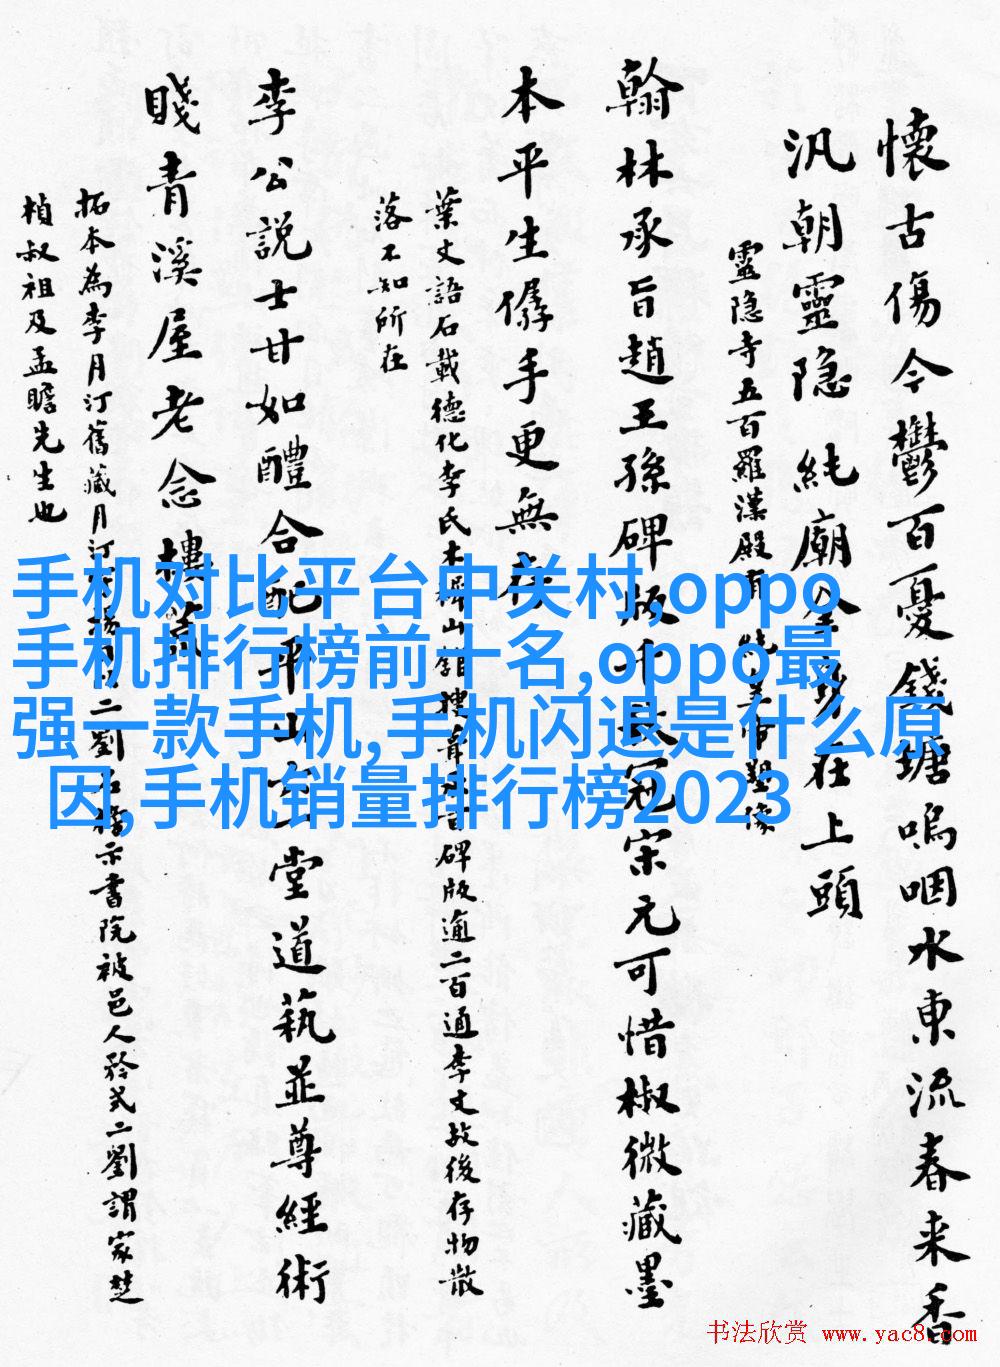 懷古傷今鬱百憂錢塘嗚咽水東流春来香
汎朝靈隐純廟金身在上頭
靈隐寺五百羅漢殿有純皇帝塑像
翰林承旨趙王孫碑版千秋冠宋元可惜椒微藏墨
本平生僝手更無存
葉文語石載德化李氏木樨山館摟碑版逾二百通李文故後存物散
落不知所在
李公説士甘如醴合配平山堂道蓺並尊經術
賤青溪屋老念樓
拓本為李月汀舊藏月汀二劉示書院被邑人矜式二劉謂家楚
楨叔祖及孟瞻先生也
手机对比平台中关村,oppo
手机排行榜前十名,oppo最
强一款手机,手机闪退是什么原
因,手机销量排行榜2023
书法欣赏 www.yac8.com